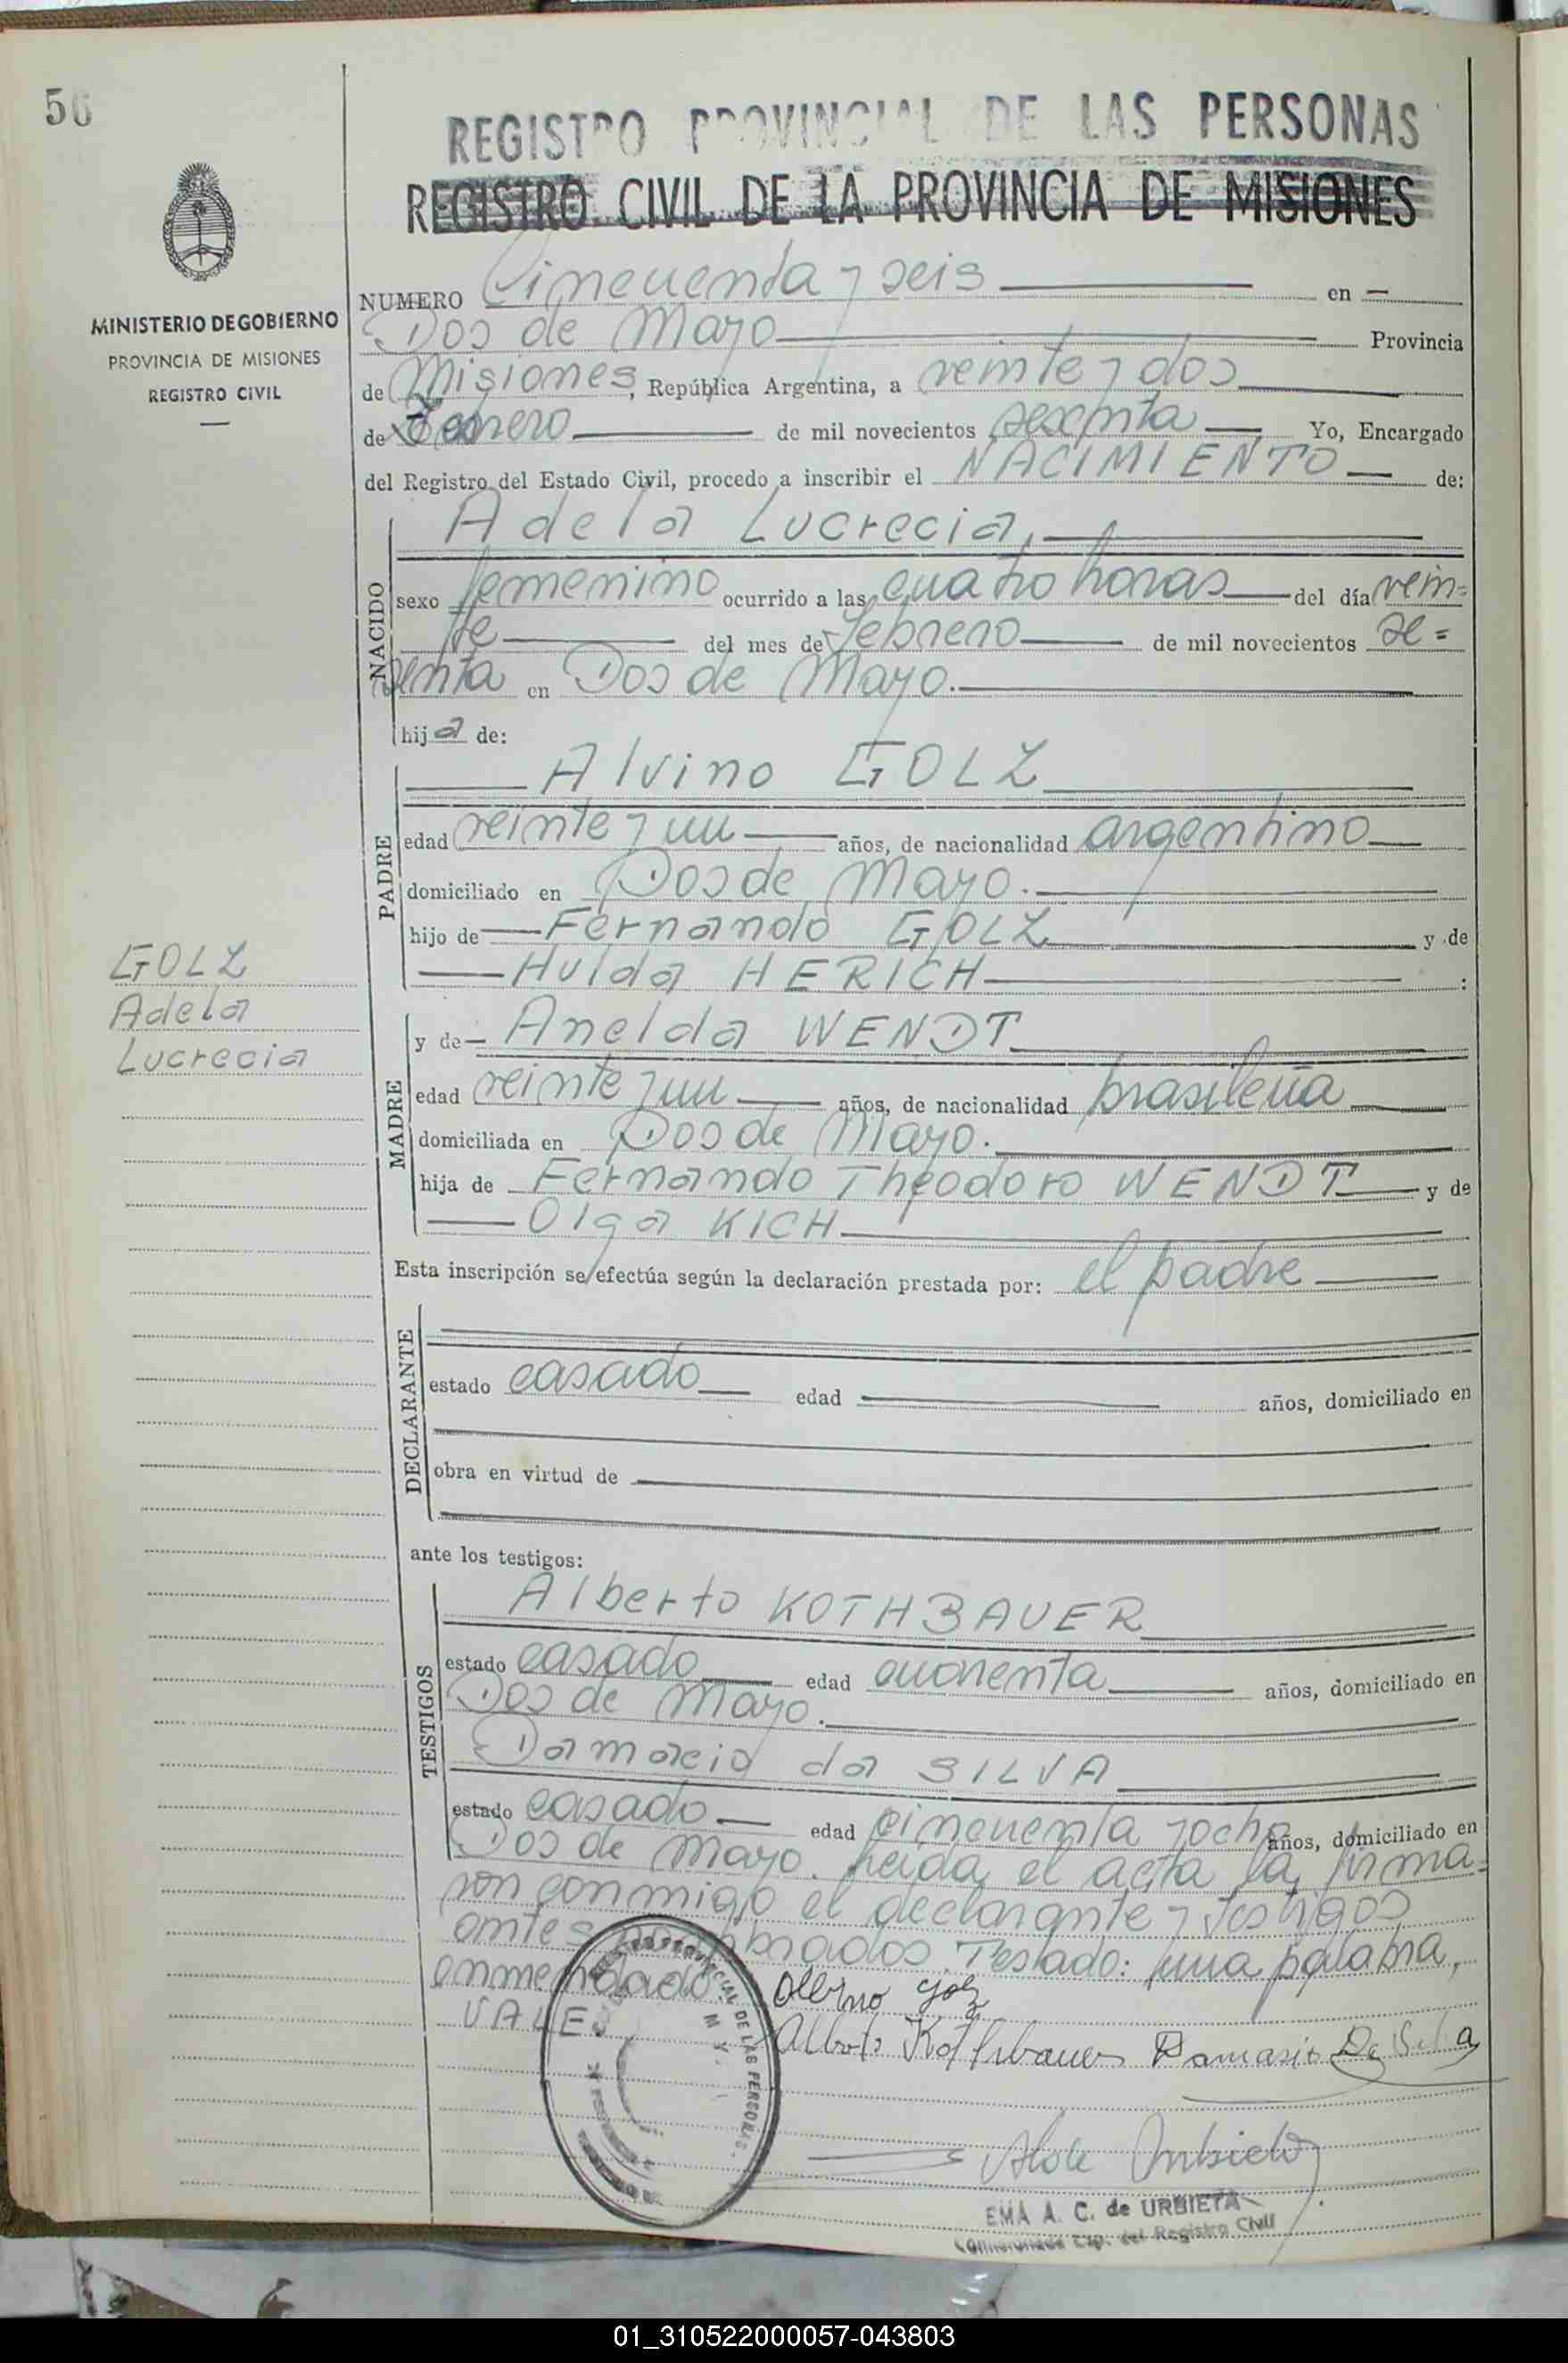 56
REGISTRO PROVINCIAL DE LAS PERSONAS
REGISTRO CIVIL DE LA PROVINCIA DE MISIONES
MINISTERIO DE GOBIERNO
PROVINCIA DE MISIONES
REGISTRO CIVIL
NUMERO Cincuenta y seis en —
Dos de Mayo Provincia
de Misiones, República Argentina, a veinte y dos
de Febrero de mil novecientos sesenta Yo, Encargado
del Registro del Estado Civil, procedo a inscribir el NACIMIENTO de:
NACIDO
Adela Lucrecia,
sexo femenino ocurrido a las cuatro horas del día vein=
te del mes de Febrero de mil novecientos se=
senta en Dos de Mayo.
hija de:
PADRE
Alvino GOLZ
edad veinte y un años, de nacionalidad argentino
domiciliado en Dos de Mayo.
hijo de Fernando GOLZ y de
Hulda HERICH :
GOLZ
Adela
Lucrecia
MADRE
y de Anelda WENDT
edad veinte y un años, de nacionalidad brasileña
domiciliada en Dos de Mayo.
hija de Fernando Theodoro WENDT y de
Olga KICH
Esta inscripción se efectúa según la declaración prestada por: el padre
DECLARANTE
estado casado edad años, domiciliado en
obra en virtud de
ante los testigos:
TESTIGOS
Alberto KOTHBAUER
estado casado edad cuarenta años, domiciliado en
Dos de Mayo.
Damacio da SILVA
estado casado edad cincuenta y ocho años, domiciliado en
Dos de Mayo. Leida el acta la firma=
ron conmigo el declarante y testigos
antes nombrados. Testado: una palabra,
enmendado
VALE
Alvino Golz
Alberto Kothbauer Damasio Da Silva
REGISTRO PROVINCIAL DE LAS PERSONAS
EMA A. C. de URBIETA
Comisionada Esp. del Registro Civil
01_310522000057-043803